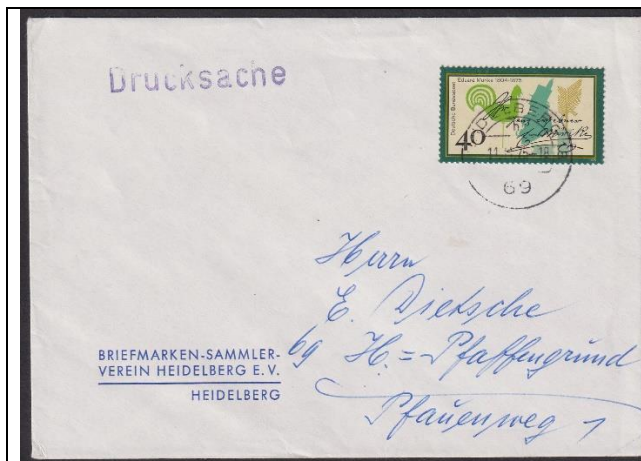 Drucksache
Eduard Mörike 1804-1875
Deutsche Bundespost
40
69
Herrn
E. Dietsche
69 H.=Pfaffengrund
Pfauenweg 1
BRIEFMARKEN-SAMMLER-
VEREIN HEIDELBERG E.V.
HEIDELBERG